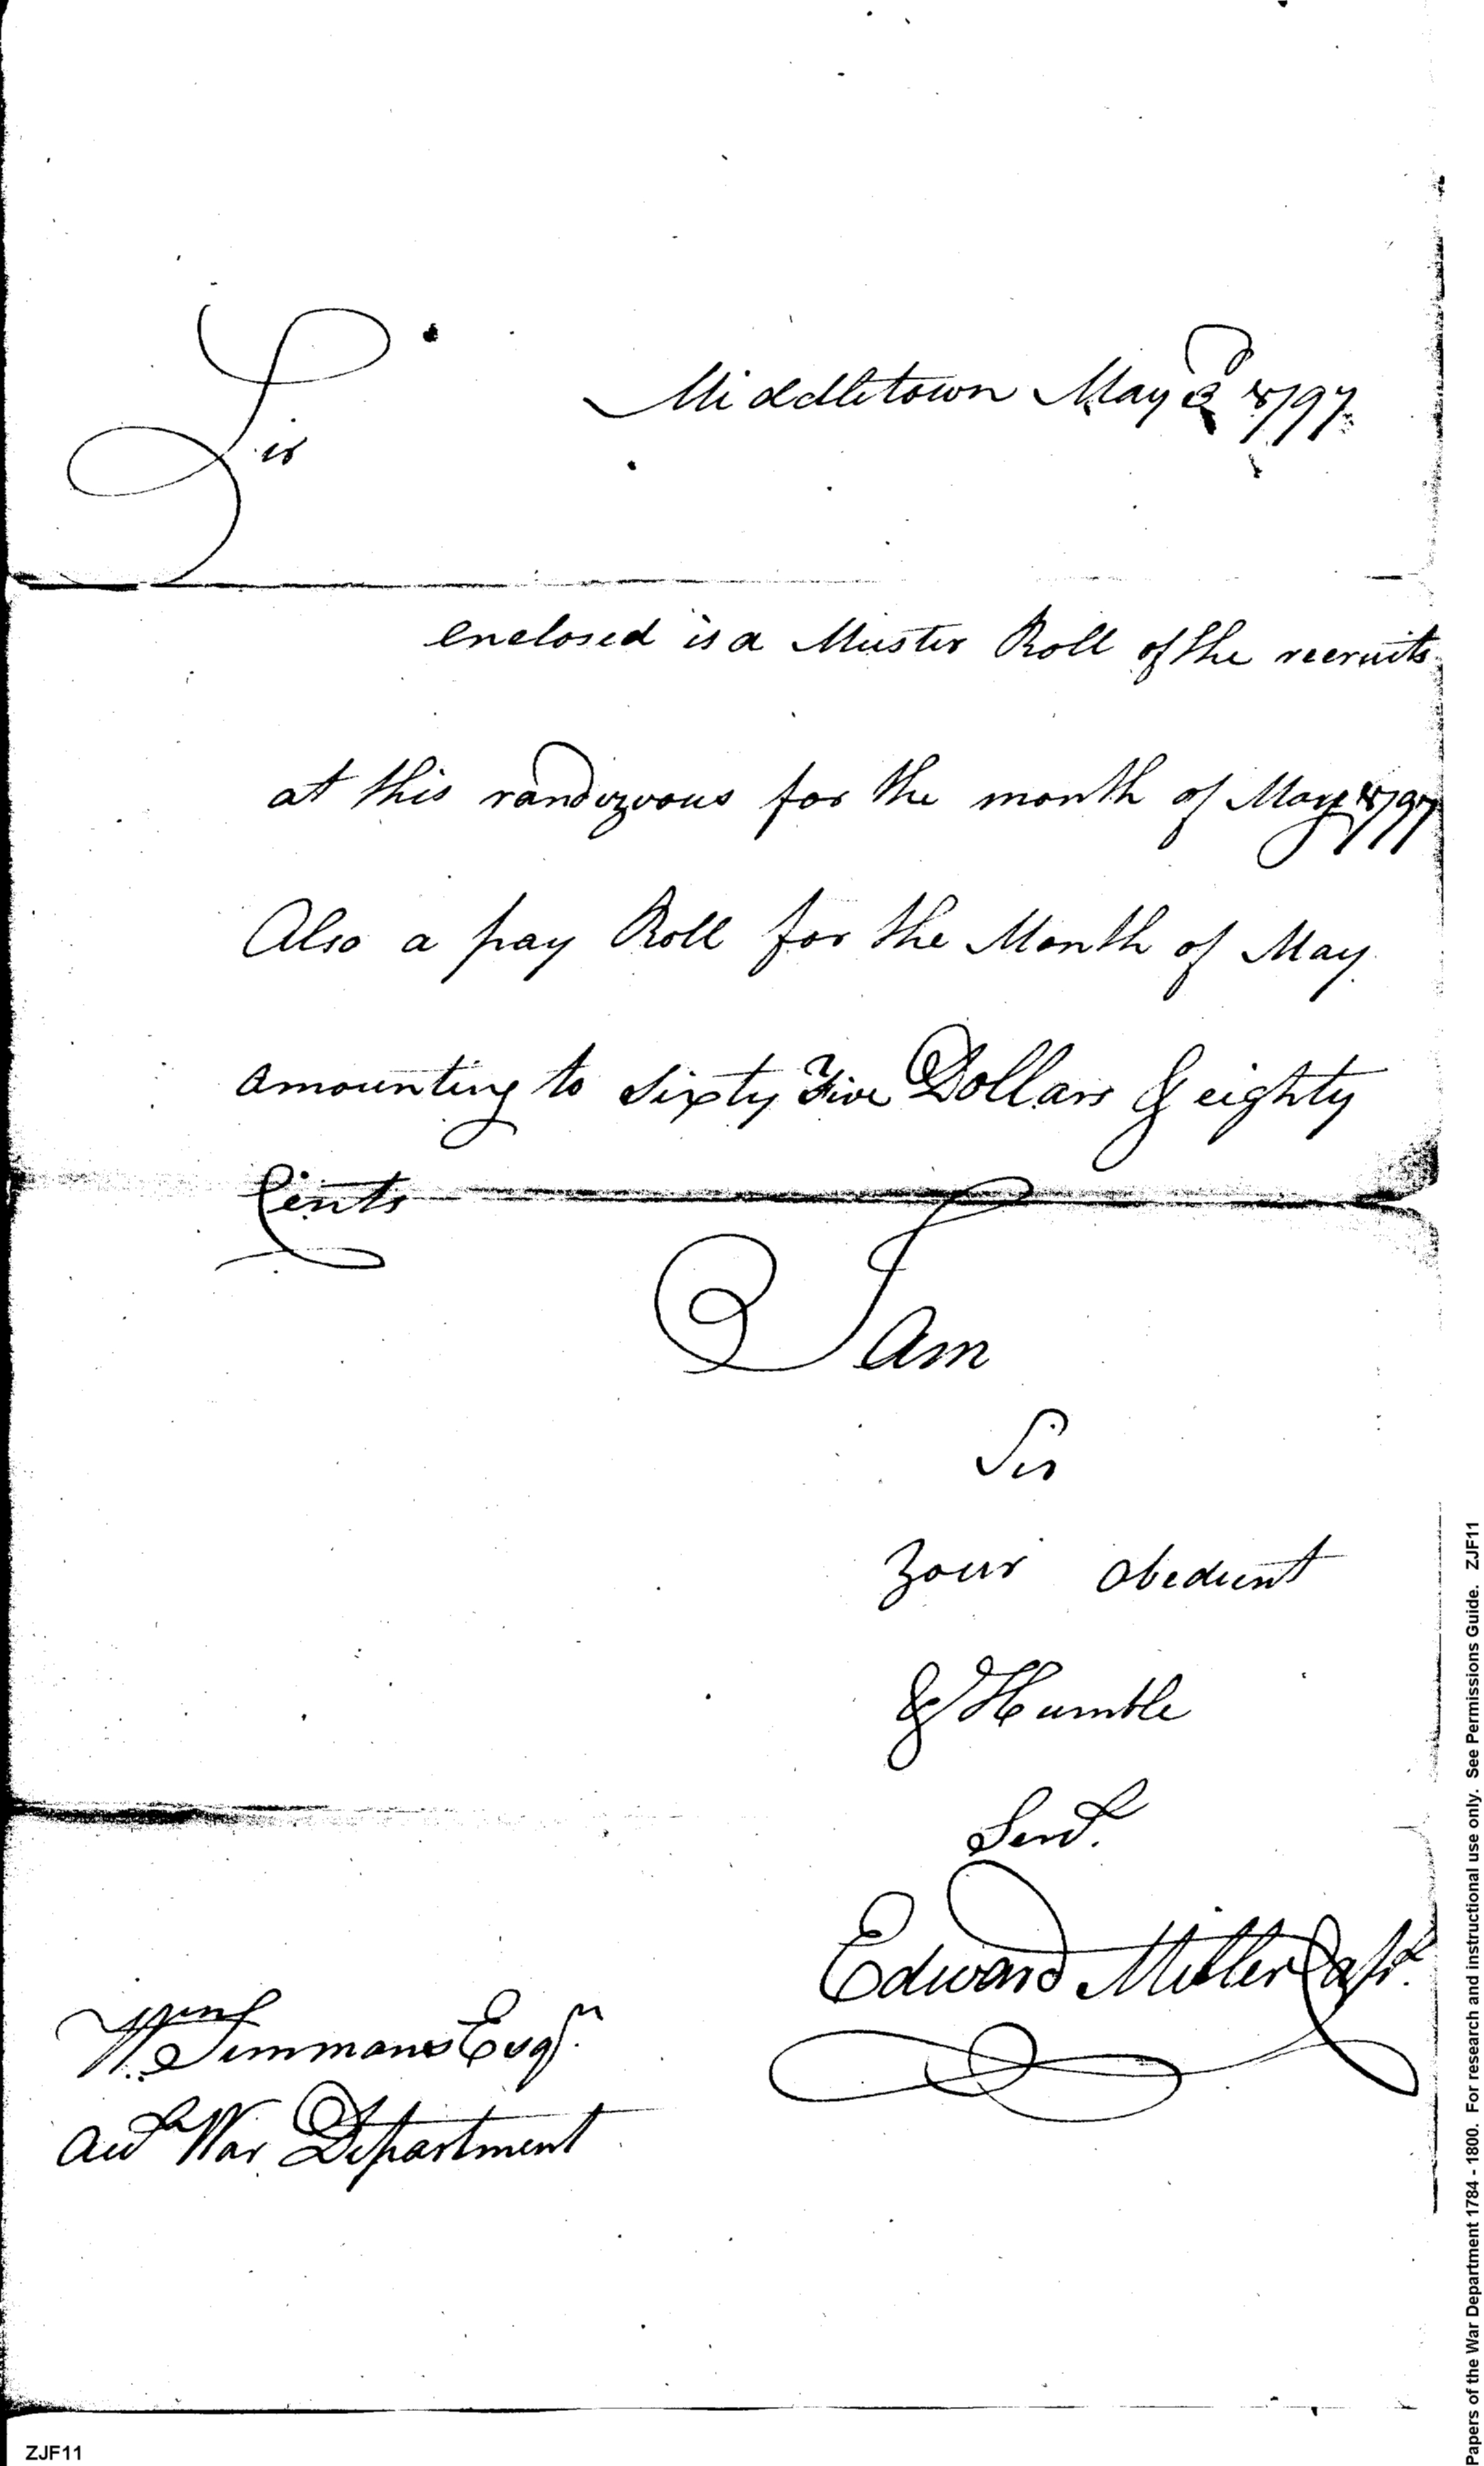 Middletown May 3d 1797
Sir
enclosed is a Muster Roll of the recruits
at this randizvous for the month of May 1797
Also a pay Roll for the Month of May
amounting to Sixty Five Dollars & eighty
Cents
I am
Sir
Your obedient
& Humble
Servt.
Edward Miller Capt.
Wm Simmons Esqr.
Acct War Department
ZJF11
Papers of the War Department 1784 - 1800. For research and instructional use only. See Permissions Guide. ZJF11